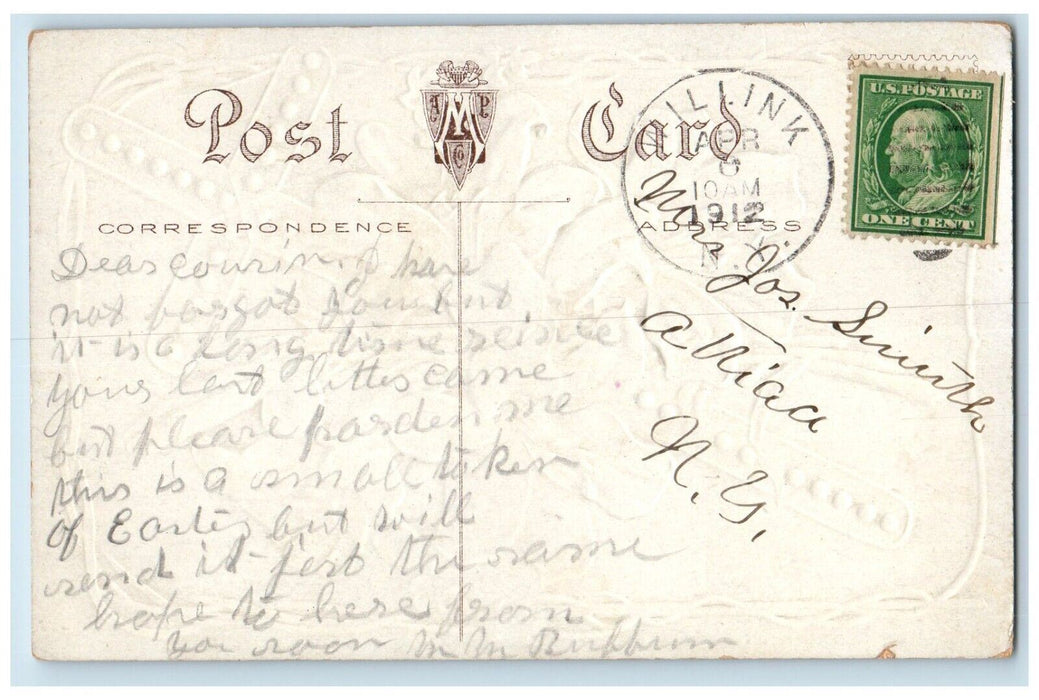 Post Card
A M P
Co
CORRESPONDENCE
ADDRESS
WILLINK
APR
6
10 AM
1912
N.Y.
U.S. POSTAGE
ONE CENT
Dear cousin. I have
not forgot you but
it is a long time seince
your last letter came
but please parden me
this is a small token
of Easter but will
send it jest the same
hope to here from
you soon M M
Mrs Jos. Smith
Attica
N. Y.